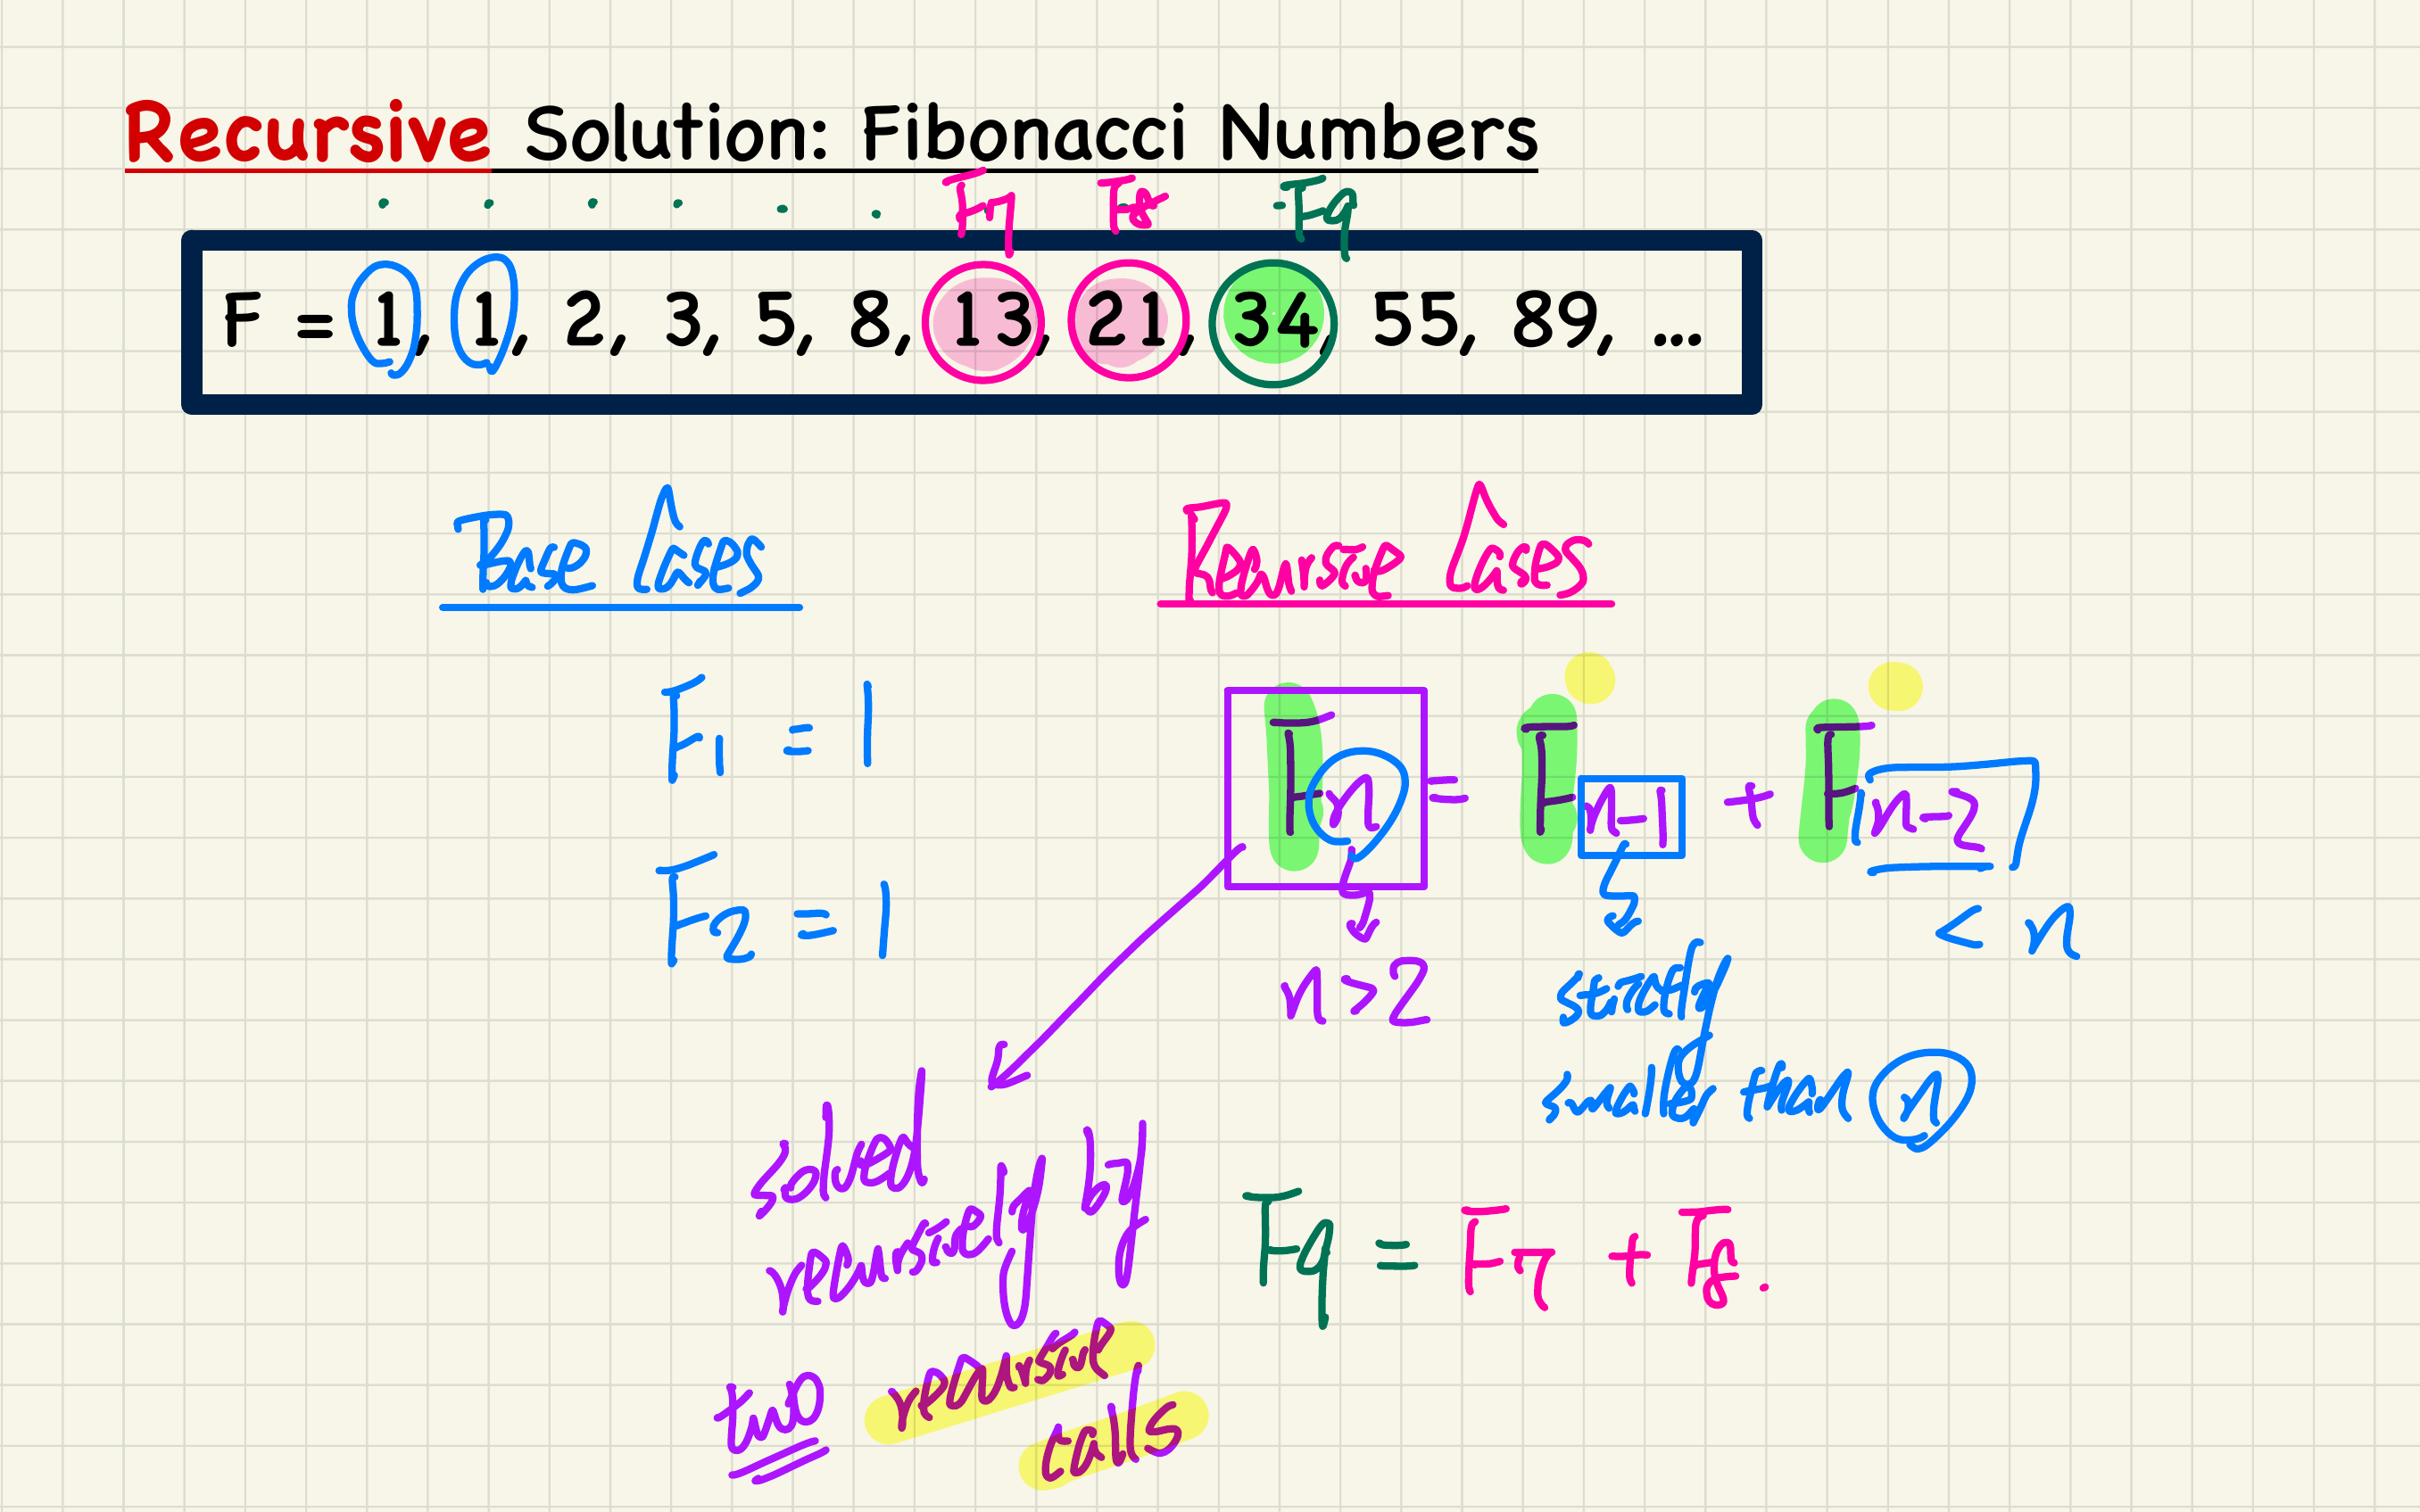 Recursive Solution: Fibonacci Numbers
F7 F8 F9
F = 1, 1, 2, 3, 5, 8, 13, 21, 34, 55, 89, ...
Base Cases
Recursive Cases
F1 = 1
F2 = 1
Fn = Fn-1 + Fn-2
n > 2
< n
strictly
smaller than n
solved
recursively by
two recursive
calls
F9 = F7 + F8.